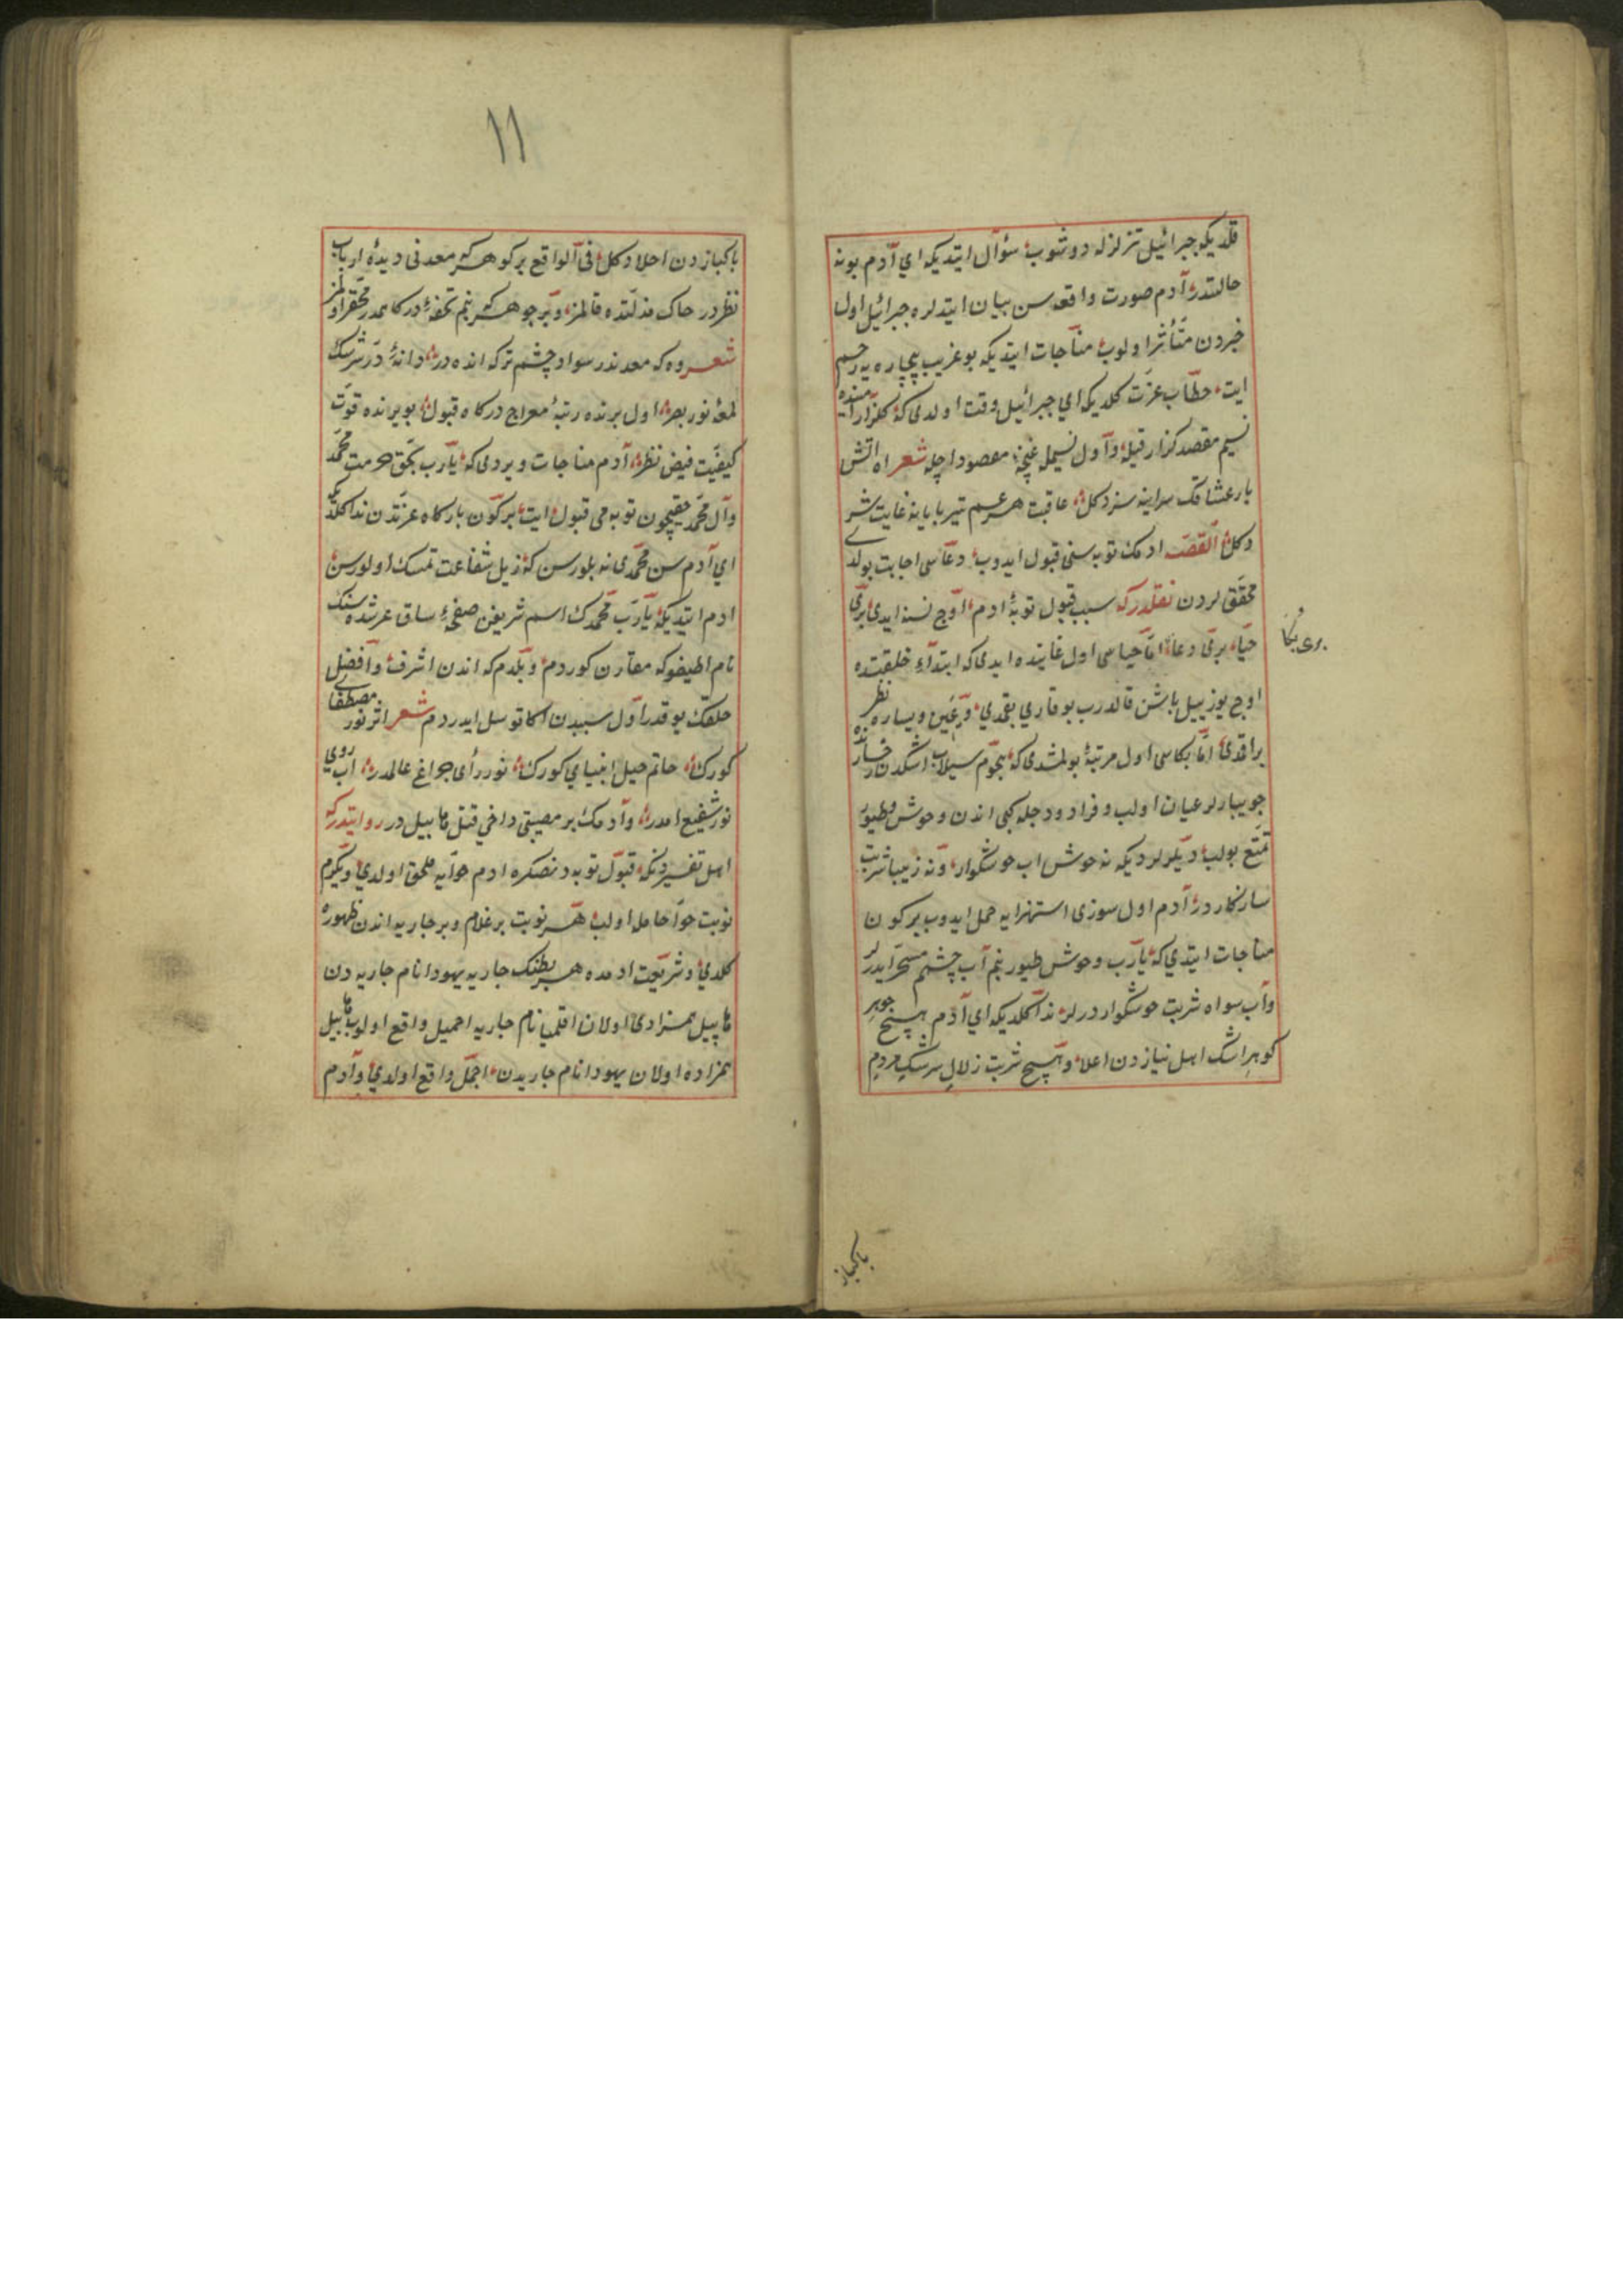 قلدیكه جبرائیل تزلزله دوشوب سؤال ایتدیكه ای آدم بو نه
حالتدر آدم صورت واقعه سن بیان ایتدلره جبرائیل اول
خبردن متأثر اولوب مناجات ایتدیكه بو غریب بیچاره یه رحم
ایت خطاب عزت كلدیكه ای جبرائیل وقت اولدی كه كلزار
نسیم مقصد كذار قیله و اول نسیمله غنچهٔ مقصود اچله شعر اه اتش
بار عشاقك سزد كل عاقبت هر عسم تیر بایانه غایت شر
دكل القصه ادمك توبه سنی قبول ایدوب دعاسی اجابت بولدی
محققلردن نقلدركه سبب قبول توبهٔ ادم اوج نسنه ایدی بری
بری بكا
حیا بری دعا اما حیاسی اول غایتده ایدی كه ابتداء خلقتده
اوج یوز ییل باشن قالدرب یوقاری بقمدی و یمین و یساره نظر
براقدی اما بكاسی اول مرتبه بولمشدی كه هجوم سیلاب اشكدن رخسارنده
جویبارلر عیان اولب و فرات و دجله كبی اندن وحوش و طیور
تمتع بولب دیرلردیكه نه خوش اب خوشكوار و نه زیبا شربت
سازكاردر آدم اول سوزی استهزایه حمل ایدوب بر كون
مناجات ایتدی كه یارب وحوش طیور بنم آب چشمم مسخر ایدرلر
و آب سواه شربت خوشكوار درلر ندا كلدیكه ای آدم هیچ جوهر
كوهر اشك اهل نیازدن اعلا و هیچ شربت زلال سرشك مردم
پاكباز
١١
پاكبازدن احلا دكل فی الواقع بر كوهر كه معدنی دیدهٔ ارباب
نظردر خاك مذلتده قالمز و بر جوهر كه بنم تحفهٔ دركاهمدر محقر اولمز
شعر وه كه معدندر سواد چشم تر كه انده در دانهٔ در سرشك
لمعهٔ نور بصر اول برنده رتبهٔ معراج دركاه قبول بو برنده قوت
كیفیت فیض نظر آدم مناجات ویردی كه یارب بحق حرمت محمد
و آل محمد حقیچون توبه می قبول ایت بر كون باركاه عزتدن ندا كلدیكه
ای آدم سن محمدی نه بلورسن كه ذیل شفاعت تمسك اولورسن
ادم ایتدیكه یارب محمدك اسم شریفن صفحهٔ ساق عرشده سنك
نام لطیفوكه مقارن كوردم و بلدم كه اندن اشرف و افضل
خلقك یوقدر اول سببدن اكا توسل ایدردم شعر اثر نور مصطفای
كورك خاتم خیل انبیایی كورك نوررأی چراغ عالمدر آب روی
نور شفیع امدر و آدمك بر مصیبتی داخی قتل هابیل در روایتدركه
اهل تفسیردنكه قبول توبه دنصكره ادم حوایه ملحق اولدی و یكرم
نوبت حوا حامله اولب هر نوبت بر غلام و بر جاریه اندن ظهوره
كلدی و شریعت ادمده هر بطنك جاریه یهودا نام جاریه دن
هابیل همزادی اولان اقلیما نام جاریه اجمل واقع اولوب قابیل
همزاده اولان یهودا نام جاریدن اجمل واقع اولدی و آدم